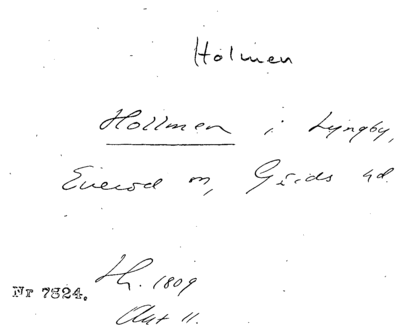 Holmen
Hollmen i Lyngby,
Everöd sn, Gärds hd.
Nr 7524.
Th. 1809
Akt 11.